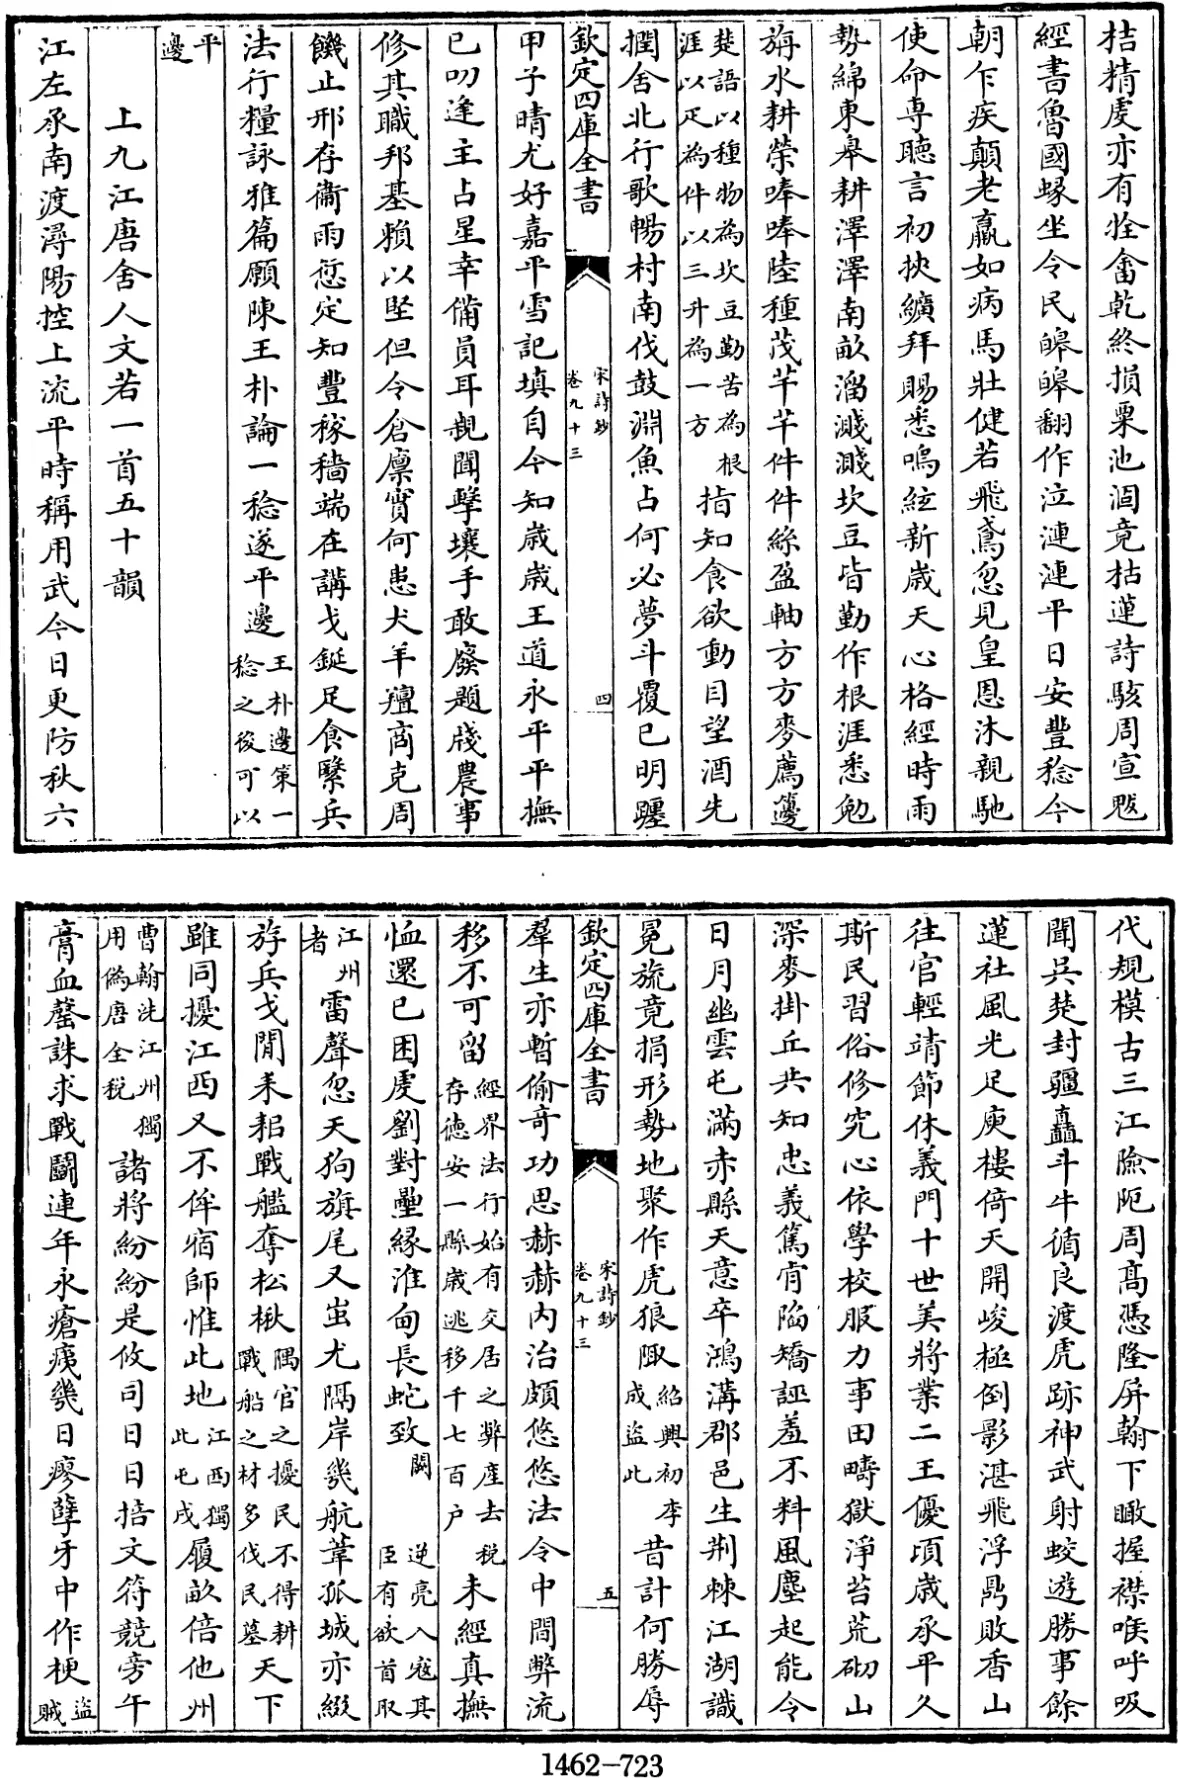 桔精虔亦有牷畬乾終損粟池涸竟枯蓮詩駭周宣旣
經書魯國螟坐令民皞皞翻作泣漣漣平日安豐稔今
朝乍疾顛老羸如病馬壯健若飛鳶忽見皇恩沐親馳
使命専聽言初挾纊拜賜悉鳴絃新歳天心格經時雨
勢綿東皋耕澤澤南畝溜濺濺坎豆皆勤作根涯悉勉
旃水耕榮唪唪陸種茂芊芊件件絲盈軸方方麥薦籩
楚語以種物為坎豆勤苦為根
涯以疋為件以三升為一方
指知食欲動目望酒先
擱舍北行歌暢村南伐鼓淵魚占何必夢斗覆已明躔
欽定四庫全書
宋詩鈔
卷九十三
四
甲子晴尤好嘉平雪記填自今知歳歳王道永平平撫
已叨逢主占星幸備員耳親聞擊壤手敢廢題牋農事
修其職邦基賴以堅但令倉廪實何患犬羊羶商克周
饑止邢存衛雨愆定知豐稼穡端在講戈鋋足食繄兵
法行糧詠雅篇願陳王朴論一稔遂平邊
王朴邊策一
稔之後可以
平
邊
上九江唐舍人文若一首五十韻
江左承南渡潯陽控上流平時稱用武今日更防秋六
代規模古三江險阨周髙憑隆屏翰下瞰握襟喉呼吸
聞吳楚封疆矗斗牛循良渡虎跡神武射蛟遊勝事餘
蓮社風光足庾樓倚天開峻極倒影湛飛浮鼎敗香山
往官輕靖節休義門十世美將業二王優頃歳承平久
斯民習俗修究心依學校服力事田疇獄淨苔荒砌山
深麥掛丘共知忠義篤肯陷矯誣羞不料風塵起能令
日月幽雲屯滿赤縣天意卒鴻溝郡邑生荆棘江湖識
冕旒竟捐形勢地聚作虎狼陬
紹興初李
成盜此
昔計何勝辱
欽定四庫全書
宋詩鈔
卷九十三
五
羣生亦暫偷竒功思赫赫内治頗悠悠法令中間弊流
移不可留
經界法行始有交居之弊産去税
存德安一縣歳逃移千七百户
未經真撫
恤還已困虔劉對壘縁淮甸長蛇致
闕
逆亮入寇其
臣有欲首取
江州
者
雷聲忽天狗旗尾又蚩尤隔岸幾航葦孤城亦綴
斿兵戈閒耒耜戰艦奪松楸
隅官之擾民不得耕
戰船之材多伐民墓
天下
雖同擾江西又不侔宿師惟此地
江西獨
此屯戌
履畝倍他州
曹翰洗江州獨
用偽唐全税
諸將紛紛是攸司日日掊文符競旁午
膏血罄誅求戰鬬連年永瘡痍幾日瘳孽牙中作梗
盜
賊
1462-723